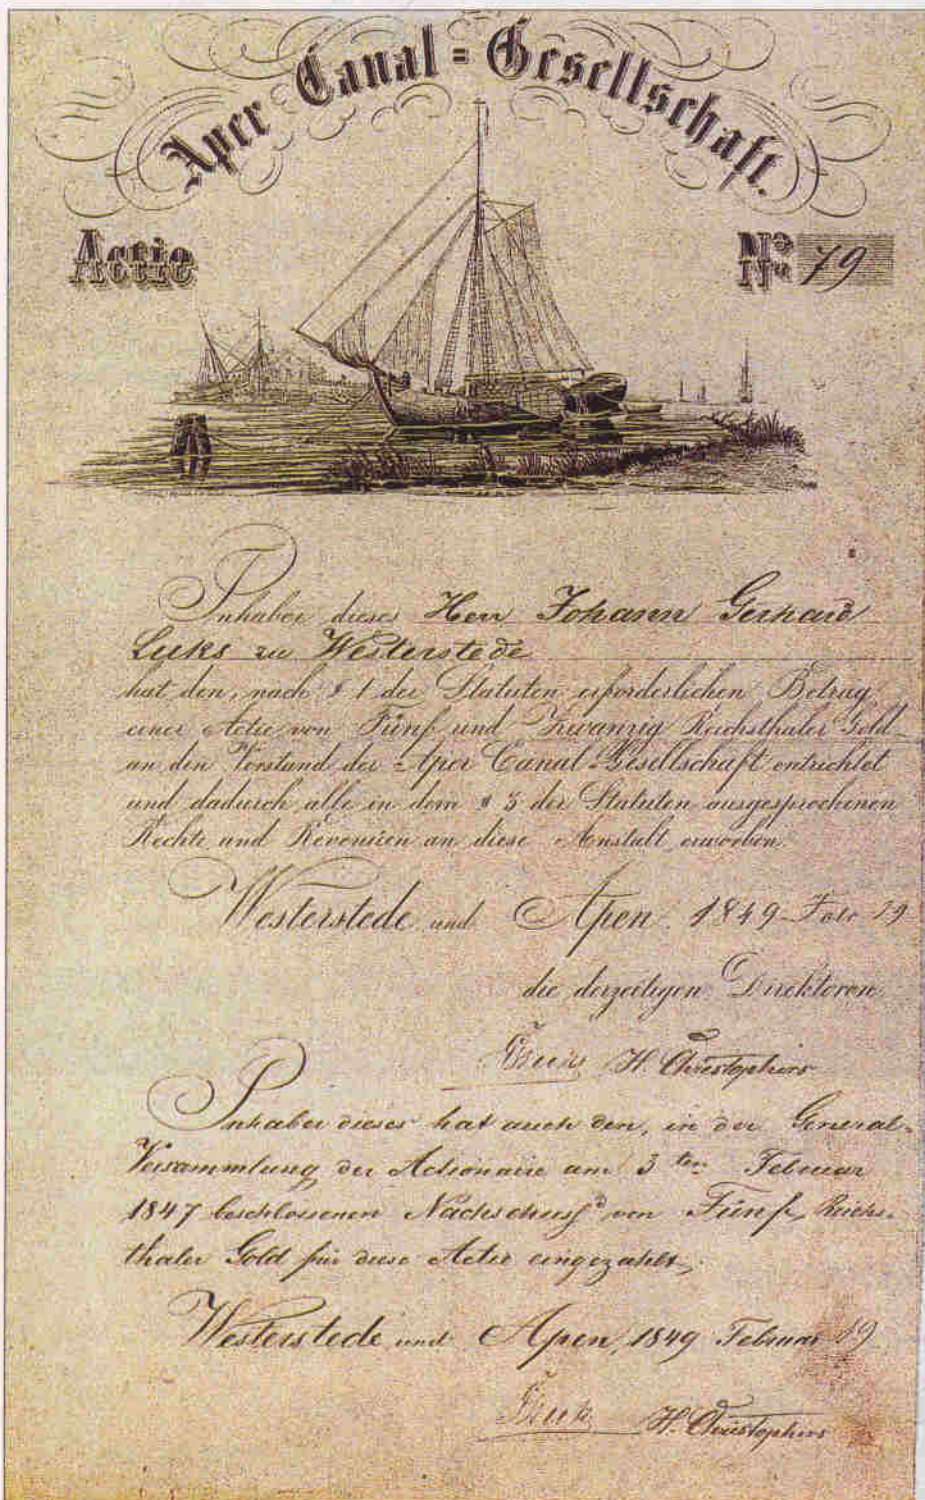 Aper Canal=Gesellschaft.
Actie
No 79
Inhaber dieses Herr Johann Gerhard
Luks zu Westerstede
hat den, nach § 1 der Statuten erforderlichen Betrag
einer Actie von Fünf und Zwanzig Reichsthaler Gold
an den Vorstand der Aper Canal-Gesellschaft entrichtet
und dadurch alle in dem § 3 der Statuten ausgesprochenen
Rechte und Revenüen an diese Anstalt erworben.
Westerstede und Apen 1849 19
die derzeitigen Direktoren
H. Christophers
Inhaber dieses hat auch den, in der General-
Versammlung der Actionaire am 3ten Februar
1847 beschlossenen Nachschuss von Fünf Reichs-
thaler Gold für diese Actie eingezahlt.
Westerstede und Apen, 1849 Februar 19
H. Christophers